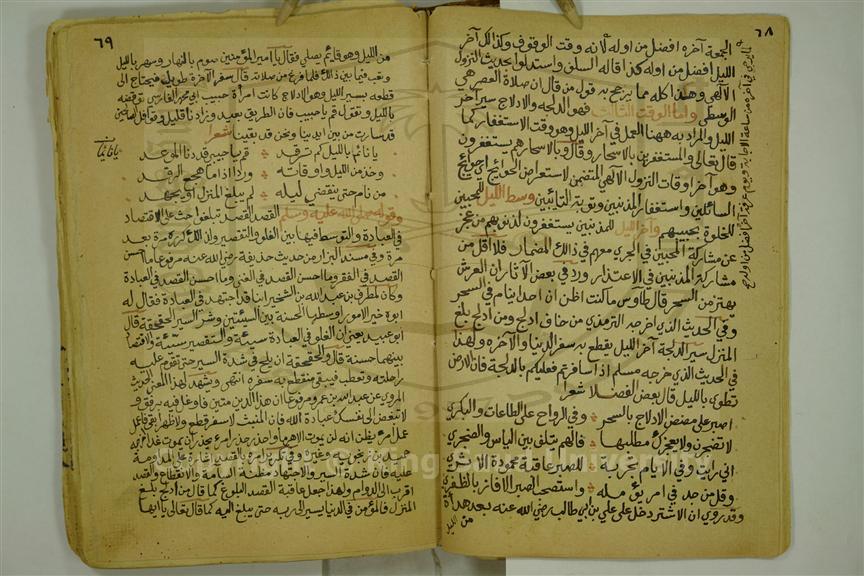 ٦٨
الجمعة آخره افضل من اوله لأنه وقت الوقوف وكذلك آخر
الليل افضل من اوله كذا قاله السلف واستدلوا بحديث النزول
الالهي وهذا كله مما يرجح به قول من قال ان صلاة العصر هي
الوسطى واما الوقت الثالث فهو الدلجه والادلاج سير آخر
الليل والمراد به ههنا العمل في آخر الليل وهو وقت الاستغفار كما
قال تعالى والمستغفرين بالاسحار وقال وبالاسحار هم يستغفرون
وهو آخر اوقات النزول الالهي المتضمن لاستعراض الحوائج
السائلين واستغفار المذنبين وتوبة التائبين وسط الليل للمحبين
للخلوة بحبيبهم وآخر الليل للمذنبين يستغفرون لذنوبهم من عجز
عن مشاركة المحبين في الجري معهم في ذلك المضمار فلا اقل من
مشاركة المذنبين في الاعتذار ورد في بعض الآثار ان العرش
يهتز من السحر قال طاوس ما كنت اظن ان احدا ينام في السحر
وفي الحديث الذي اخرجه الترمذي من خاف ادلج ومن ادلج بلغ
المنزل سير الدلجة آخر الليل يقطع به سفر الدنيا والآخره ولهذا
في الحديث الذي خرجه مسلم اذا سافرتم فعليكم بالدلجة فان الارض
تطوى بالليل قال بعض الفضلا شعرا
اصبر على مضض الادلاج بالسحر وفي الرواح على الطاعات والبكر
لا تضجرن ولا يعجزك مطلبها فالهم يتلف بين الياس والضجر
اني رايت وفي الايام تجربة للصبر عاقبة محمودة الاثر
وقل من جد في امر يؤمله واستصحب الصبر الا فاز بالظفر
وقد روي ان الاشتر دخل على علي بن ابي طالب رضي الله عنه بعد هدأة
من الليل
٦٩
من الليل وهو قائم يصلي فقال يا امير المؤمنين صوم بالنهار وسهر بالليل
وتعب فيما بين ذلك فلما فرغ من صلاته قال سفر الآخرة طويل فيحتاج الى
قطعه بسير الليل وهو الادلاج كانت امرأة حبيب ابي محمد الفارسي توقظه
بالليل وتقول قم يا حبيب فان الطريق بعيد وزادنا قليل وقوافل الصالحين
قد سارت من بين ايدينا ونحن قد بقينا شعرا
يا نائم بالليل كم ترقد قم يا حبيبي قد دنا الموعد
وخذ من الليل واوقاته وردا اذا ما هجع الرقد
من نام حتى ينقضي ليله لم يبلغ المنزل او يجهد
وقوله صلى الله عليه وسلم القصد القصد تبلغوا حث على الاقتصاد
في العبادة والتوسط فيها بين الغلو والتقصير ولذلك كرره مرة بعد
مرة وفي مسند البزار من حديث حذيفة رضي الله عنه مرفوعا ما احسن
القصد في الفقر وما احسن القصد في الغنى وما احسن القصد في العبادة
وكان لمطرف بن عبد الله بن الشخير ابنا قد اجتهد في العبادة فقال له
ابوه خير الامور اوسطها الحسنة بين السيئتين وشر السير الحقحقة قال
ابو عبيد يعني ان الغلو في العبادة سيئة والتقصير سيئة والاقتصاد
بينهما حسنة قال والحقحقة ان يلح في شدة السير حتى تقوم عليه
راحلته وتعطب فيبقى منقطع به سفره انتهى ويشهد لهذا المعنى الحديث
المروي عن عبد الله بن عمرو مرفوعا ان هذا الدين متين فاوغل فيه برفق و
لا تبغض الى نفسك عبادة الله فان المنبت لا سفر قطع ولا ظهرا ابقى فاعمل
عمل امرء يظن انه لن يموت الا هرما واحذر حذر امرء يحذر ان يموت غدا
عليه فان شدة السير والاجتهاد مظنة السآمة والانقطاع والقصد
اقرب الى الدوام ولهذا جعل عاقبة القصد البلوغ كما قال من ادلج بلغ
المنزل فالمؤمن في الدنيا يسير الى ربه حتى يبلغ اليه كما قال تعالى يا ايها